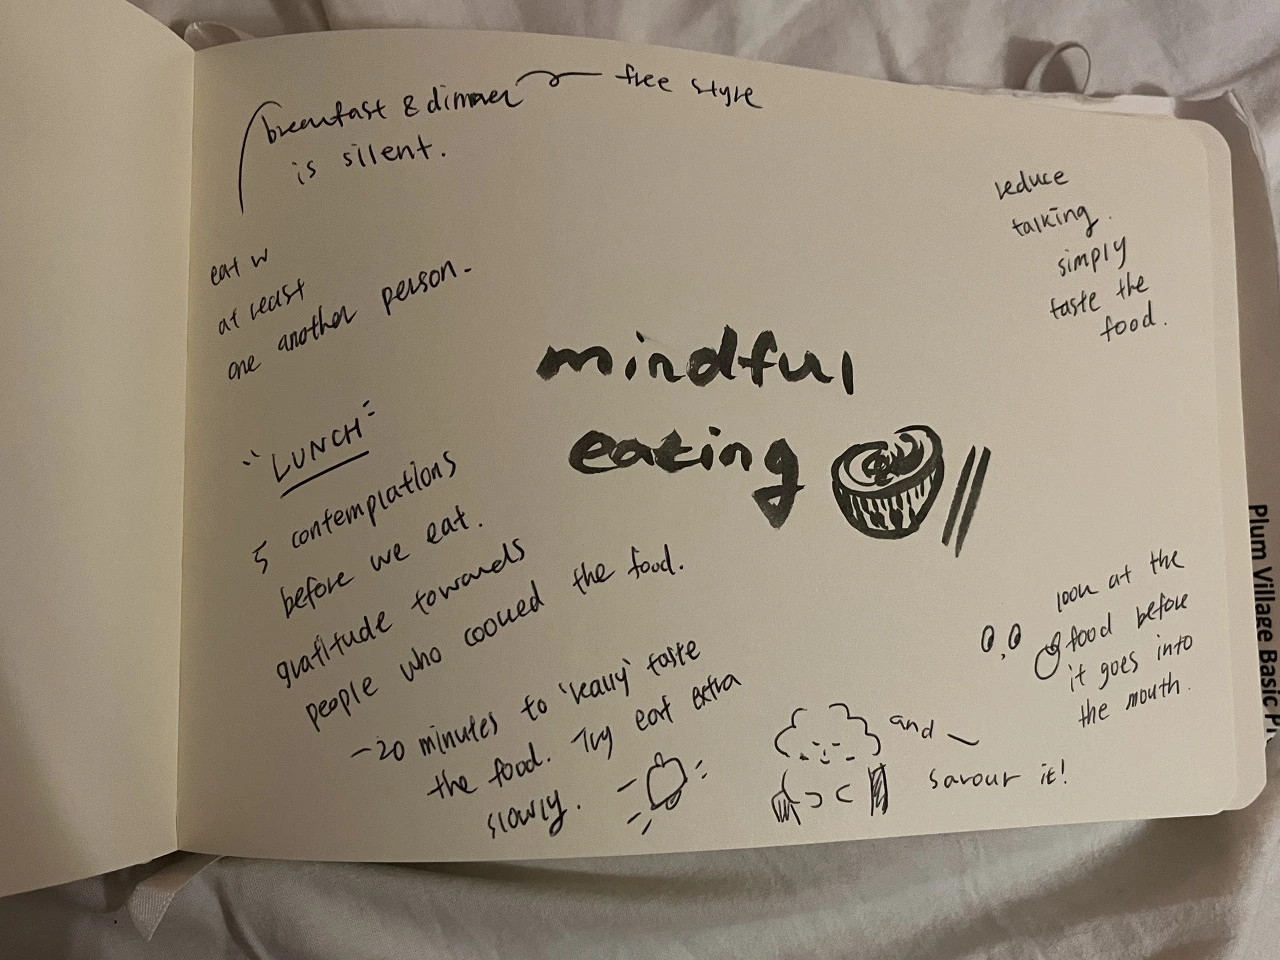 breakfast & dinner
is silent.
free style
eat w
at least
one another person.
reduce
talking.
simply
taste the
food.
mindful
eating
"LUNCH"
5 contemplations
before we eat.
gratitude towards
people who cooked the food.
- 20 minutes to 'really' taste
the food. Try eat extra
slowly.
look at the
food before
it goes into
the mouth.
and
savour it!
Plum Village Basic